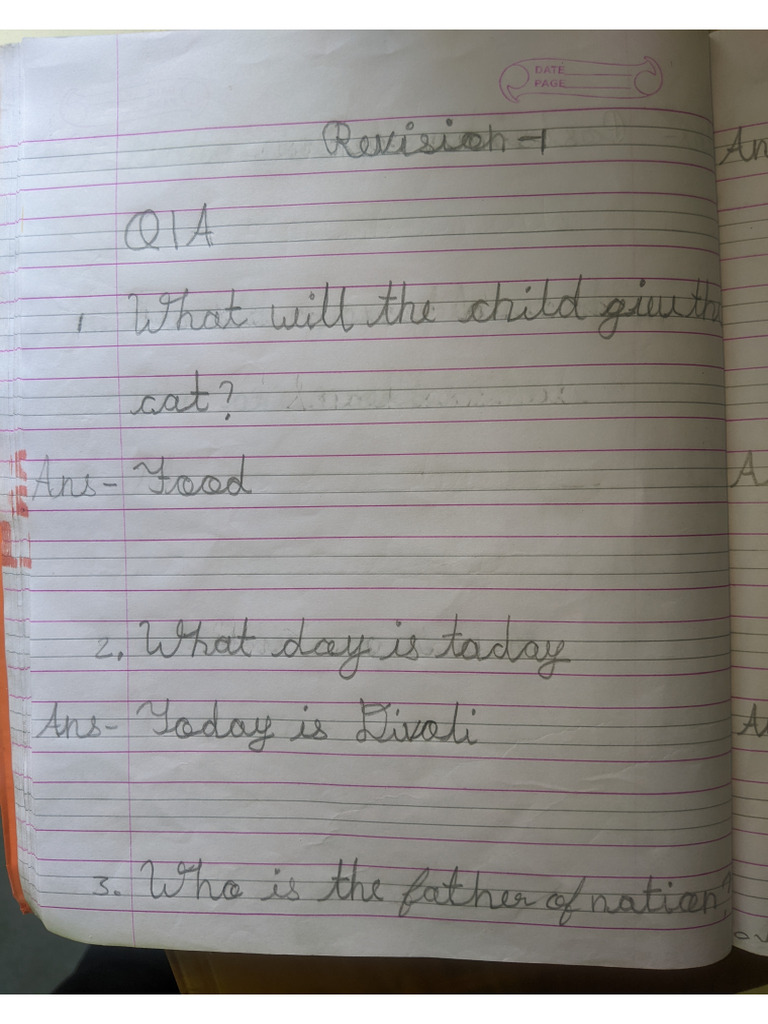 DATE
PAGE
Revision-1
Q1A
1 What will the child give the
cat?
Ans- Food
2. What day is today
Ans- Today is Divali
3. Who is the father of nation?
An
A
A